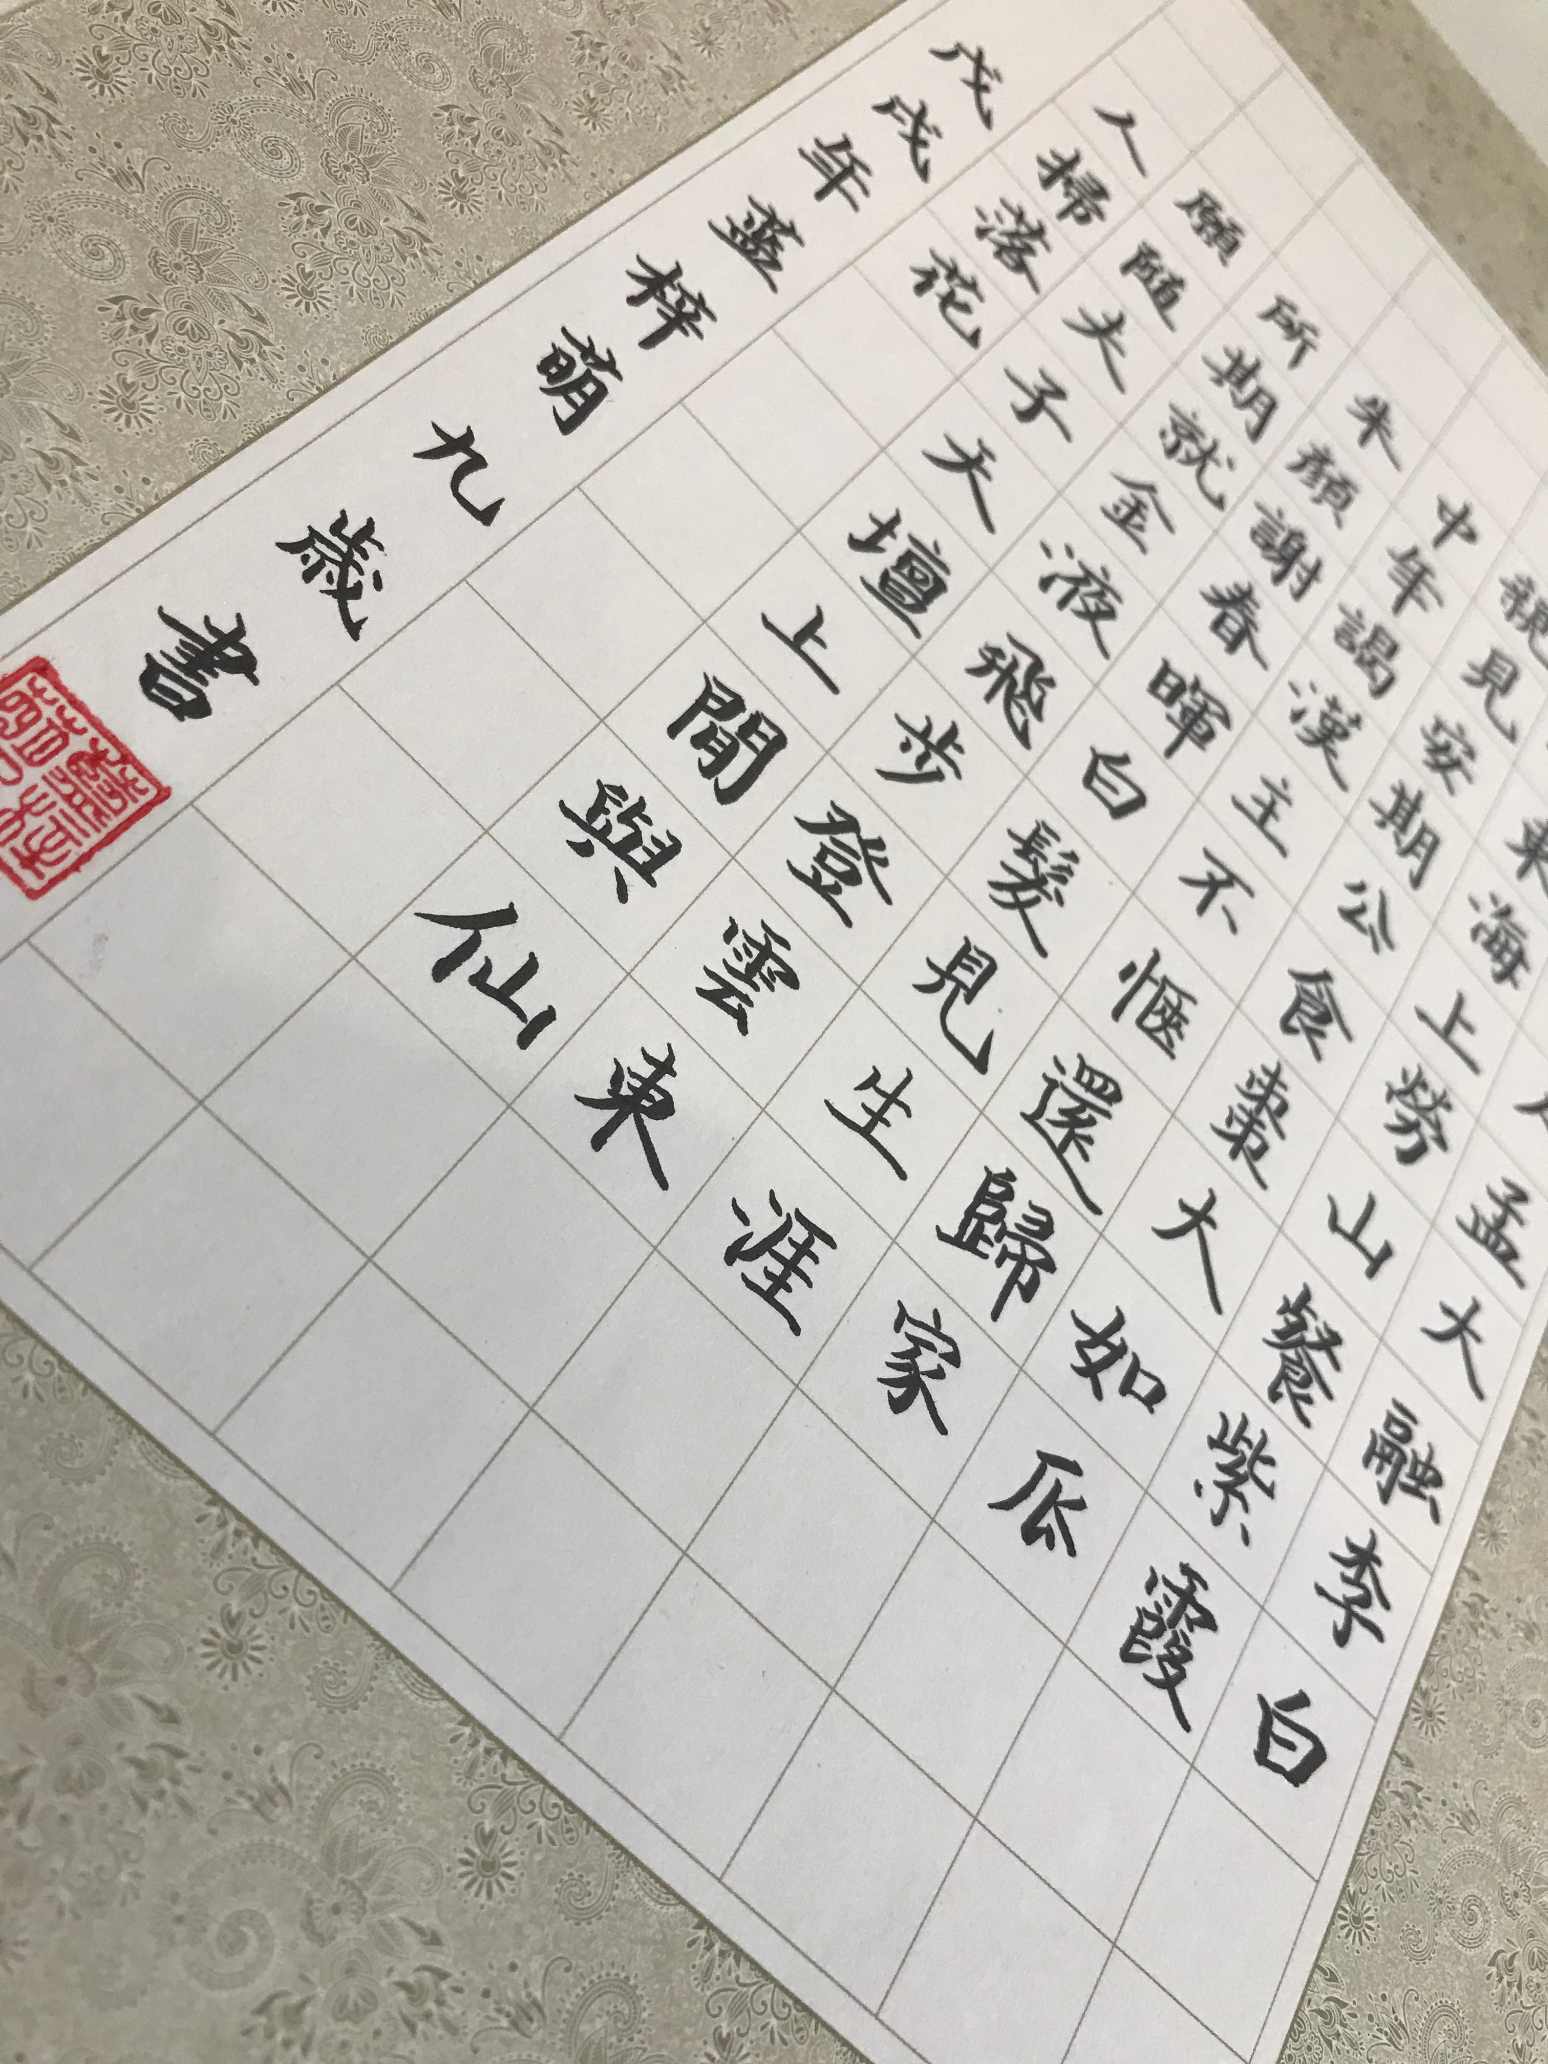 孟大融李白
東海上勞山餐紫霞
親見安期公食棗大如瓜
中年謁漢主不愜還歸家
朱顏謝春暉白髮見生涯
所期就金液飛步登雲東
願隨夫子天壇上閒與仙
人掃落花
戊戌年藍梓萌九歲書